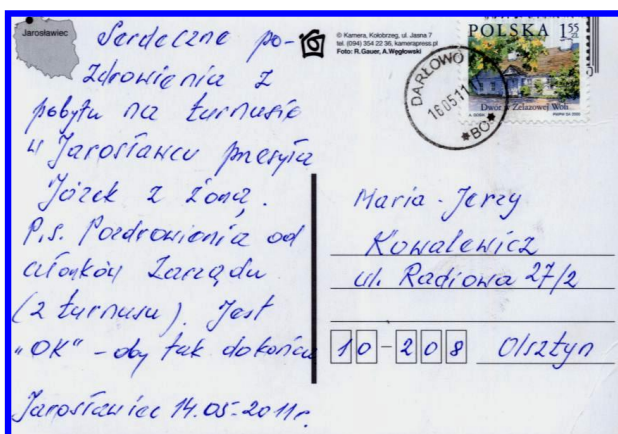 Jarosławiec
Serdeczne po-
zdrowienia z
pobytu na turnusie
w Jarosławcu przesyła
Józek z żoną.
P.s. Pozdrowienia od
członków Zarządu
(z turnusu). Jest
„OK" - oby tak do końca
Jarosławiec 14.05-2011r.
© Kamera, Kołobrzeg, ul. Jasna 7
tel. (094) 354 22 36, kamerapress.pl
Foto: R.Gauer, A.Węgłowski
POLSKA 1,55
ZŁ
Dwór w Żelazowej Woli
DARŁOWO
160511
*BO*
Maria - Jerzy
Kowalewicz
ul. Radiowa 27/2
10-208 Olsztyn